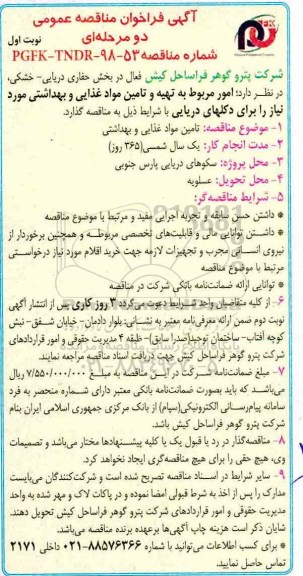 آگهی فراخوان مناقصه عمومی
دو مرحله‌ای
نوبت اول
شماره مناقصه PGFK-TNDR-98-53
شرکت پترو گوهر فراساحل کیش فعال در بخش حفاری دریایی- خشکی،
در نظر دارد: امور مربوط به تهیه و تامین مواد غذایی و بهداشتی مورد
نیاز را برای دکلهای دریایی با شرایط ذیل به مناقصه گذارد.
۱- موضوع مناقصه: تامین مواد غذایی و بهداشتی
۲- مدت انجام کار: یک سال شمسی(۳۶۵ روز)
۳- محل پروژه: سکوهای دریایی پارس جنوبی
۴- محل تحویل: عسلویه
۵- شرایط مناقصه‌گر:
* داشتن حسن سابقه و تجربه اجرایی مفید و مرتبط با موضوع مناقصه
* داشتن توانایی مالی و قابلیت‌های تخصصی مربوطه و همچنین برخوردار از
نیروی انسانی مجرب و تجهیزات لازمه جهت خرید اقلام مورد نیاز درخواستی
مرتبط با موضوع مناقصه
* توانایی ارائه ضمانت‌نامه بانکی شرکت در مناقصه
۶- از کلیه متقاضیان واجد شرایط دعوت می‌گردد ۳ روز کاری پس از انتشار آگهی
نوبت دوم ضمن ارائه معرفی‌نامه معتبر به نشانی: بلوار دادمان- خیابان شفق- نبش
کوچه آفتاب- ساختمان توحید(صدرا سابق)- طبقه ۴ مدیریت حقوقی و امور قراردادهای
شرکت پترو گوهر فراساحل کیش جهت دریافت اسناد مناقصه مراجعه نمایند.
۷- مبلغ ضمانت‌نامه شرکت در این مناقصه به مبلغ ۷/۵۵۰/۰۰۰/۰۰۰ ریال
می‌باشد که باید بصورت ضمانت‌نامه بانکی معتبر دارای شماره منحصر به فرد
سامانه پیام‌رسانی الکترونیکی(سپام) از بانک مرکزی جمهوری اسلامی ایران بنام
شرکت پترو گوهر فراساحل کیش باشد.
۸- مناقصه‌گذار در رد یا قبول یک یا کلیه پیشنهادها مختار می‌باشد و تصمیمات
وی، هیچ حقی را برای هیچ مناقصه‌گری ایجاد نخواهد کرد.
۹- سایر شرایط در اسناد مناقصه تصریح شده است و شرکت‌کنندگان می‌بایست
مدارک را پس از اخذ به شرط قبولی امضا نموده و در پاکات لاک و مهر شده به واحد
مدیریت حقوقی و امور قراردادهای شرکت پترو گوهر فراساحل کیش تحویل دهند.
شایان ذکر است هزینه چاپ آگهی‌ها برعهده برنده مناقصه می‌باشد.
* برای کسب اطلاعات می‌توانید با شماره ۸۸۵۷۶۳۶۶-۰۲۱ داخلی ۲۱۷۱
تماس حاصل نمایید.